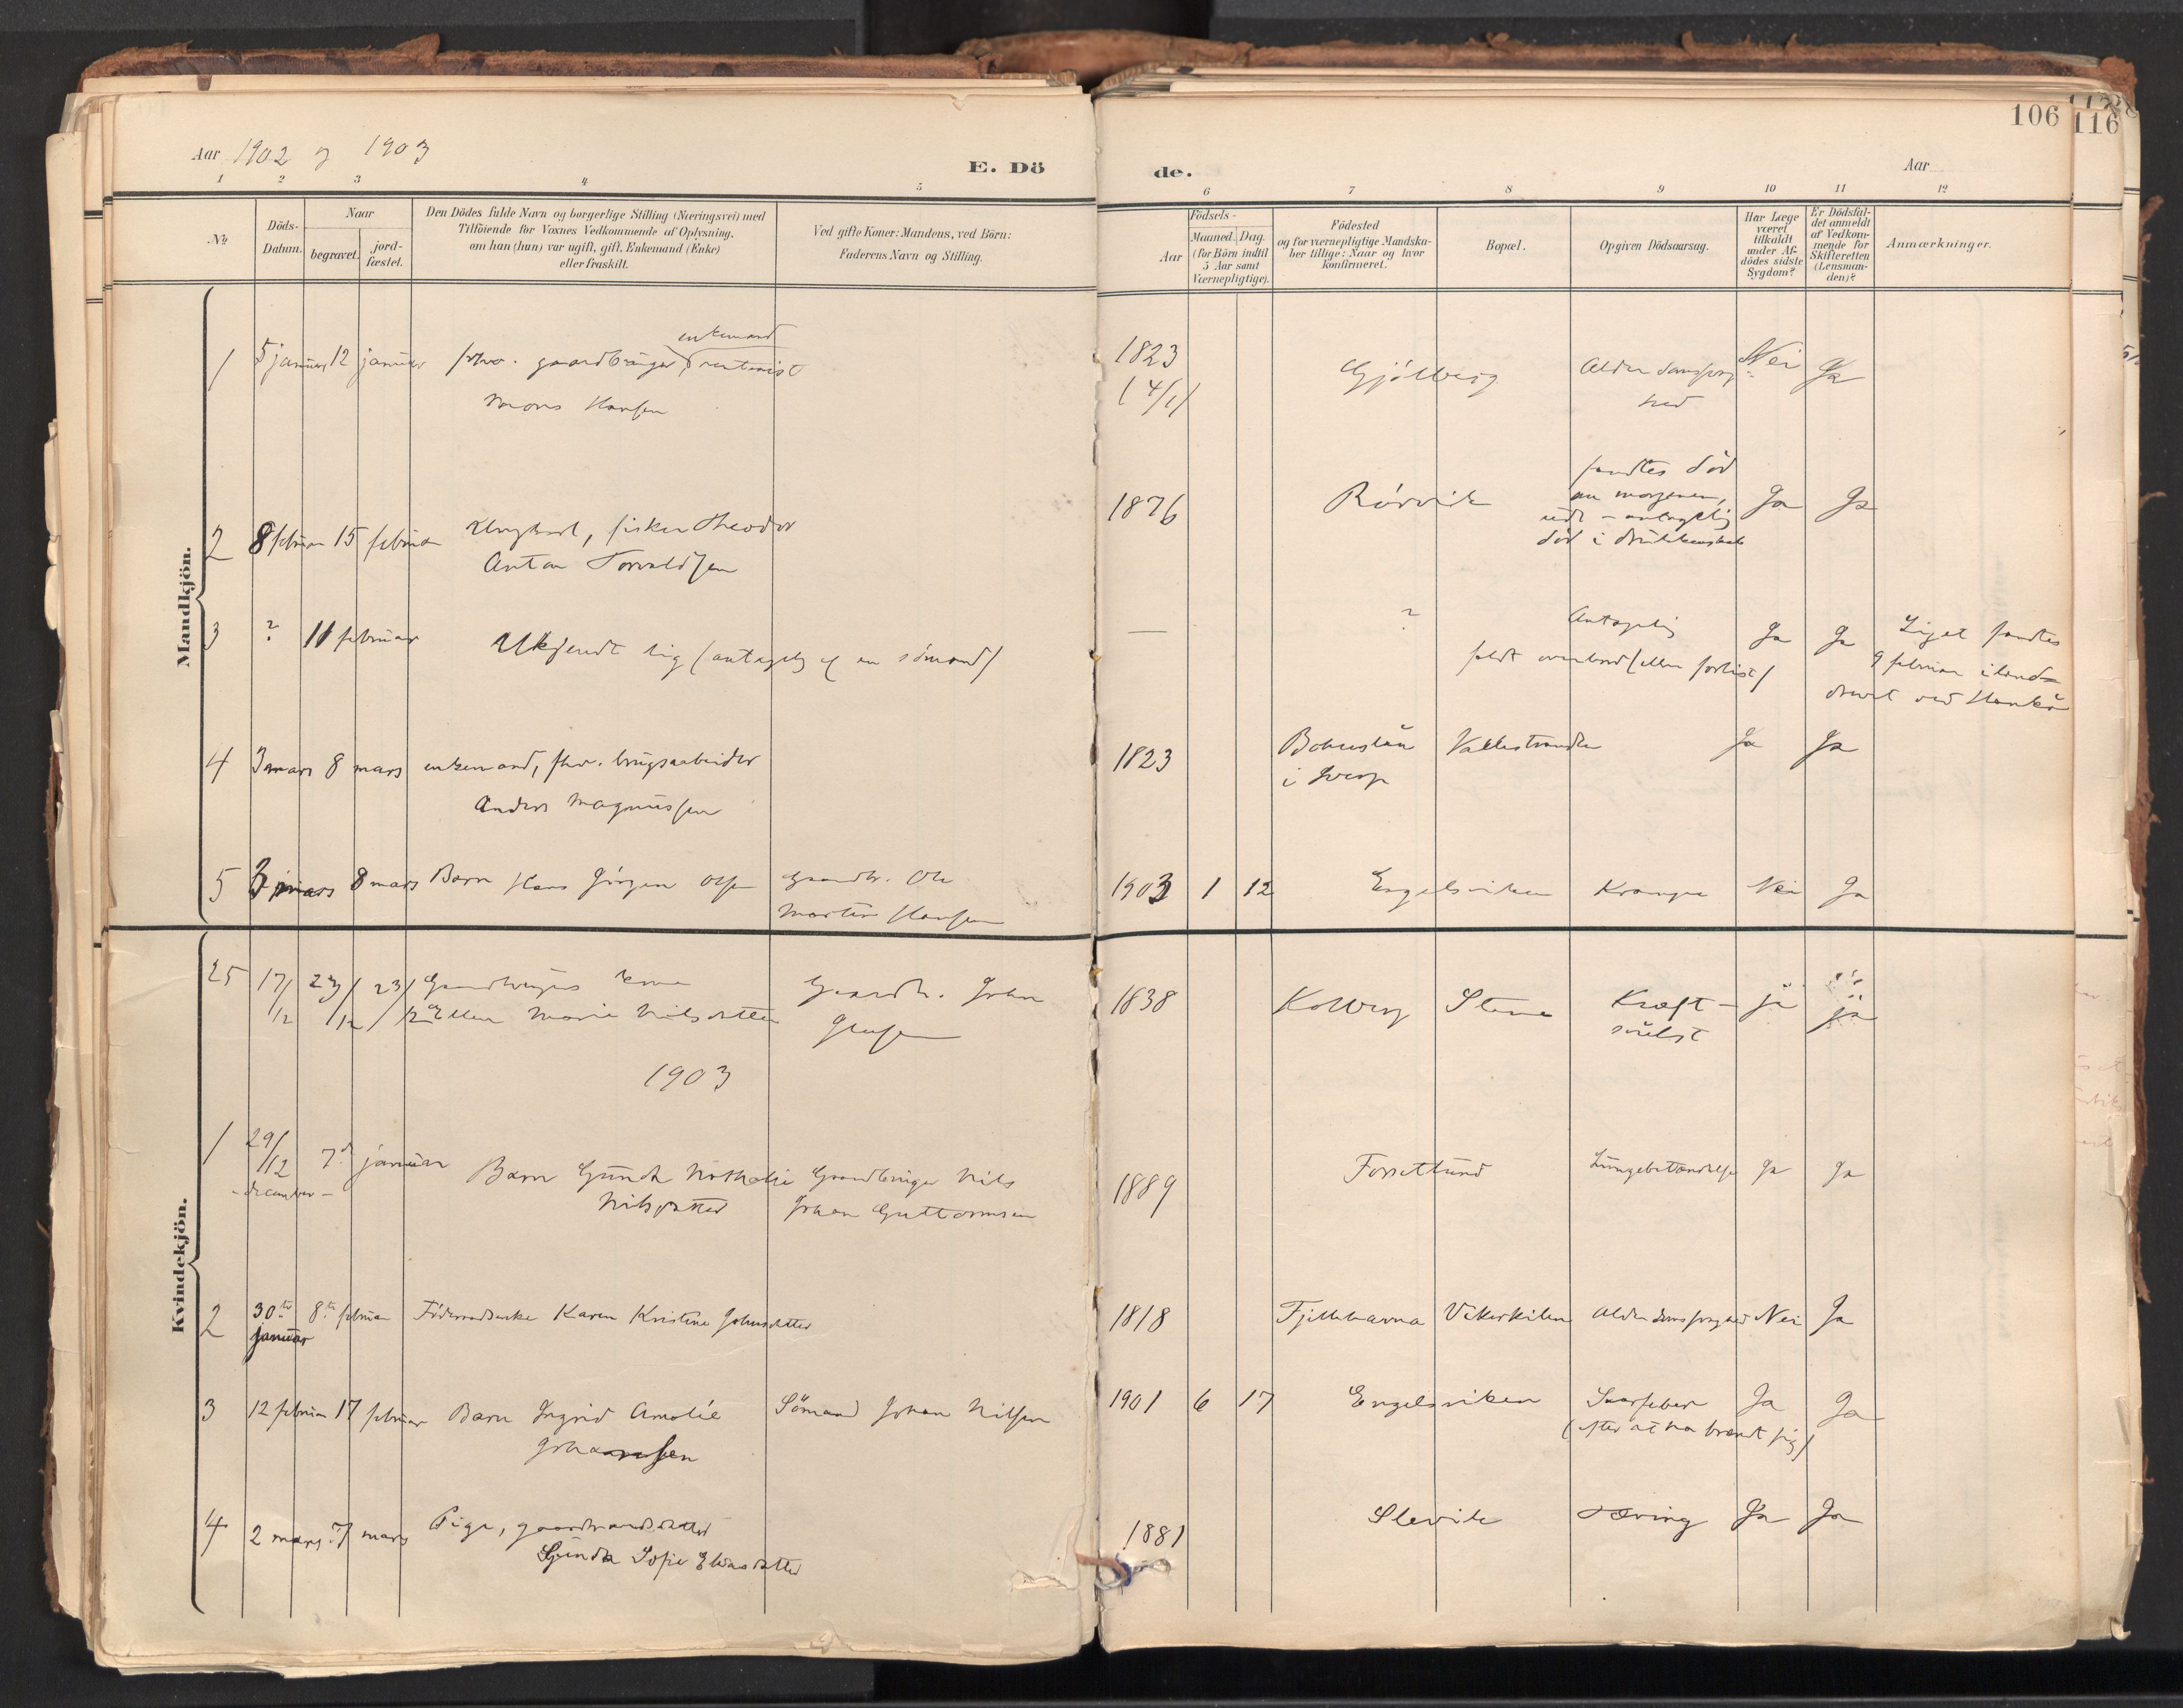 106
116
Aar 1902 og 1903
E. Dö
de.
Aar
1 2 3 4 5
6 7 8 9 10 11 12
No
Döds-
Datum.
Naar
begravet.
jord-
fæstet.
Den Dödes fulde Navn og borgerlige Stilling (Næringsvei) med
Tilföiende for Voxnes Vedkommende af Oplysning.
om han (hun) var ugift, gift, Enkemand (Enke)
eller fraskilt.
Ved gifte Koner: Mandens, ved Börn:
Faderens Navn og Stilling.
Födsels-
Aar
Maaned. Dag.
(for Börn indtil
5 Aar samt
Værnepligtige).
Födested
og for værnepligtige Mandska-
ber tillige: Naar og hvor
konfirmeret.
Bopæl.
Opgiven Dödsaarsag.
Har Læge
været
tilkaldt
under Af-
dödes sidste
Sygdom?
Er Dödsfal-
det anmeldt
af Vedkom-
mende for
Skifteretten
(Lensman-
den)?
Anmærkninger.
Mandkjön.
enkemand
1 5 januar 12 januar fhv. gaardbruger, rentenist
Mons Hansen
1823
(4/1)
Gjölberg
Alderdomssvag-
hed
Nei Ja
2 8 februar 15 februar Ungkarl, fisker Theodor
Anton Torvaldsen
1876 Rörvik
fandtes död
om morgenen,
ude - antagelig
död i drukkenskab
Ja Ja
3 ? 11 februar Ukjendt lig (antagelig af en sömand)
— ?
Antagelig
faldt overbord (eller forlist)
Ja Ja
Liget fandtes
9 februar iland-
drevet ved Hankö
4 3 mars 8 mars enkemand, fhv. brugsarbeider
Anders Magnussen
1823 Bohuslän
i Sverge
Vallestranden Ja Ja
5 3 mars 8 mars Barn Hans Jörgen Olsen Gaardbr. Ole
Martin Hansen
1903 1 12 Engelsviken Krampe Nei Ja
Kvindekjön.
25 17/12 23/12 23/12 Gaardbrugers kone
Ellen Marie Nilsdatter
Gaardbr. Johan
Olausen
1838 Kolberg Stene Kræft-
svulst
ja ja
1903
1 29/12
- december -
7de januar Barn Gunda Nathalie
Nilsdatter
Gaardbruger Nils
Johan Guttormsen
1889 Forsetlund Lungebetændelse Ja Ja
2 30te
januar
8de februar Föderaadsenke Karen Kristine Johnsdatter
1818 Fjellskarna Vikerkilen Alderdomssvaghed Nei Ja
3 12 februar 17 februar Barn Ingrid Amalie
Johannsen
Sömand Johan Nilsen
1901 6 17 Engelsviken Saarfeber
(efter at ha brændt sig)
Ja Ja
4 2 mars 7 mars Pige, gaardmandsdatter
Gunda Sofie Eliasdatter
1881 Slevik Tæring Ja Ja